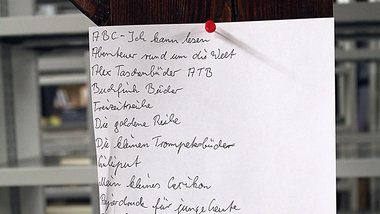 ABC-Ich kann lesen
Abenteuer rund um die Welt
Alex Taschenbücher ATB
Buchfink Bücher
Freizeitreihe
Die goldene Reihe
Die kleinen Trompeterbücher
Liliput
Mein kleines Lexikon
für junge Leute